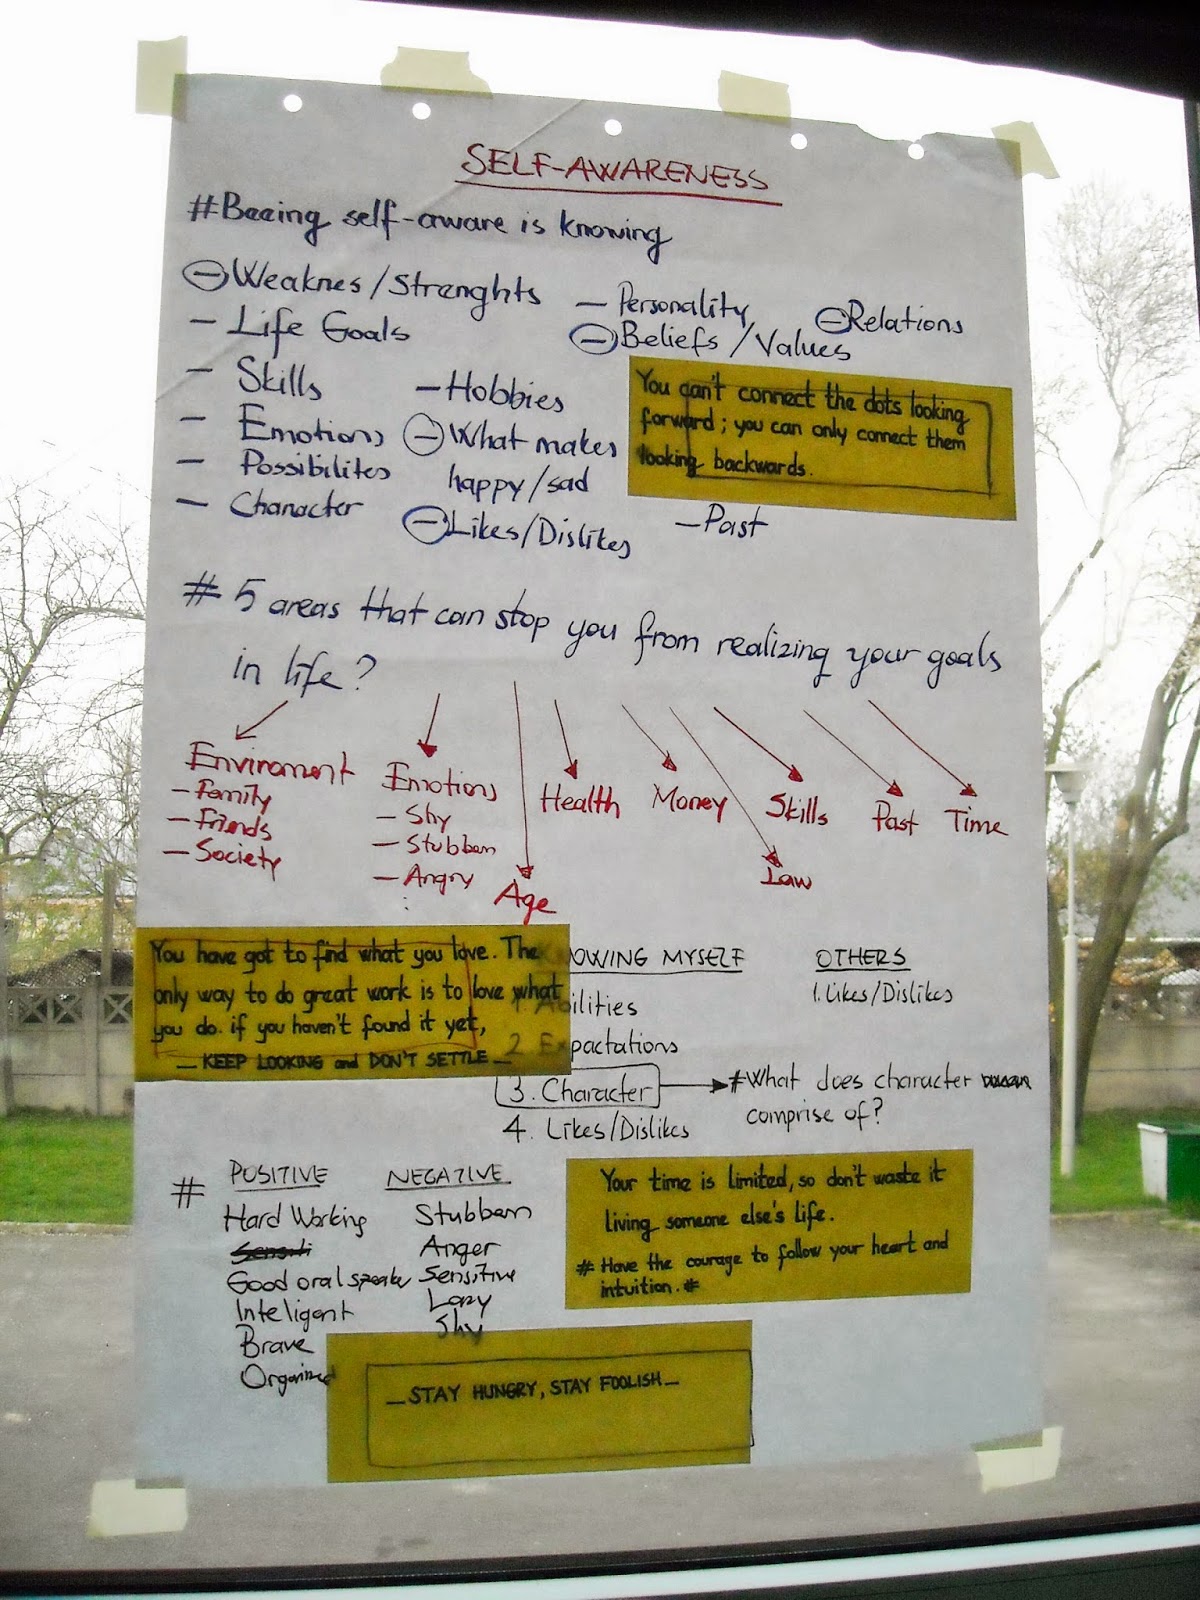 SELF-AWARENESS
#Beeing self-aware is knowing
- Weaknes/Strenghts
- Life Goals
- Skills
- Emotions
- Possibilites
- Character
- Hobbies
- What makes
happy/sad
- Likes/Dislikes
- Personality
- Beliefs/Values
- Relations
You can't connect the dots looking
forward; you can only connect them
looking backwards.
- Past
# 5 areas that can stop you from realizing your goals
in life?
Enviroment
- Family
- Friends
- Society
Emotions
- Shy
- Stubborn
- Angry
Age
Health
Money
Law
Skills
Past
Time
You have got to find what you love. The
only way to do great work is to love what
you do. if you haven't found it yet,
_ KEEP LOOKING and DON'T SETTLE _
KNOWING MYSELF
1. Abilities
2. Expactations
3. Character
4. Likes/Dislikes
OTHERS
1. Likes/Dislikes
#What does character
comprise of?
#
POSITIVE
Hard Working
Sensiti
Good oral speake
Inteligent
Brave
Organized
NEGATIVE
Stubborn
Anger
Sensitive
Lazy
Shy
Your time is limited, so don't waste it
living someone else's life.
# Have the courage to follow your heart and
intuition. #
_ STAY HUNGRY, STAY FOOLISH _